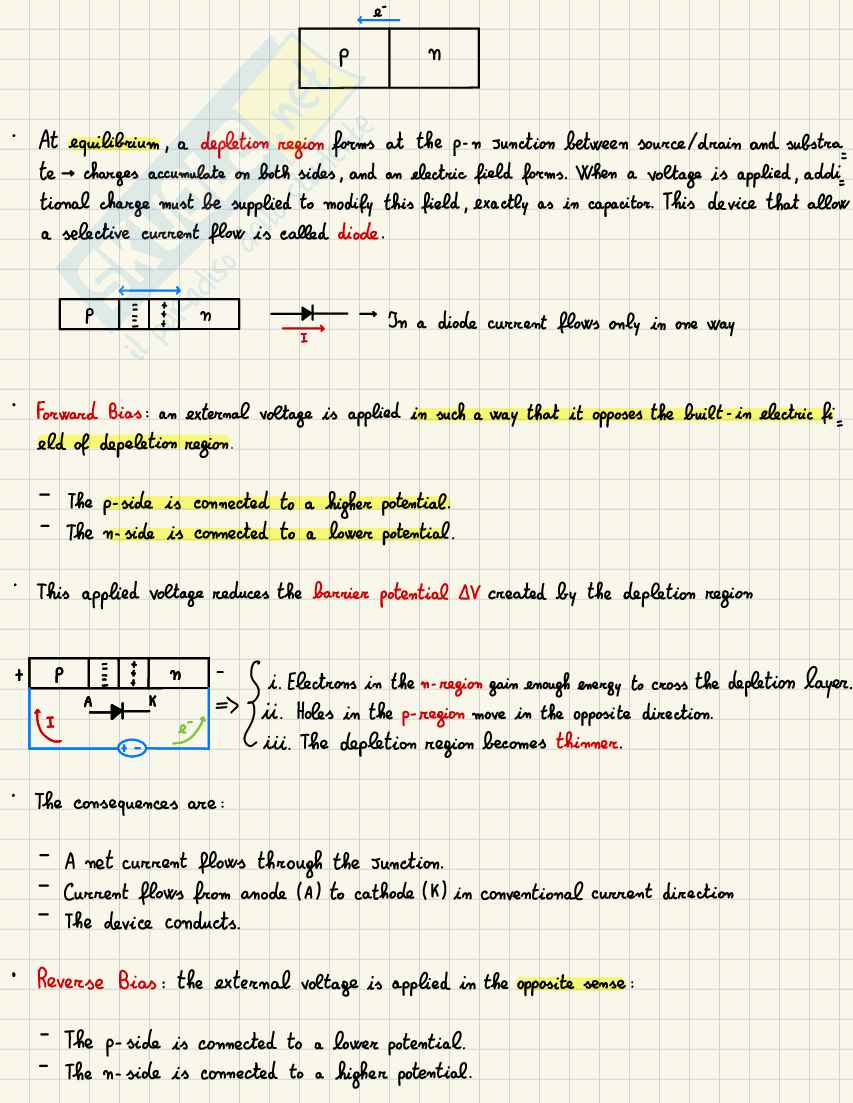 e⁻
p n
· At equilibrium, a depletion region forms at the p-n junction between source/drain and substra=
te → charges accumulate on both sides, and an electric field forms. When a voltage is applied, addi=
tional charge must be supplied to modify this field, exactly as in capacitor. This device that allow
a selective current flow is called diode.
p --- +++ n I → In a diode current flows only in one way
· Forward Bias: an external voltage is applied in such a way that it opposes the built-in electric fi=
eld of depeletion region.
- The p-side is connected to a higher potential.
- The n-side is connected to a lower potential.
· This applied voltage reduces the barrier potential ΔV created by the depletion region
+ p --- +++ n -
A K
I e⁻
+ -
=> { i. Electrons in the n-region gain enough energy to cross the depletion layer.
ii. Holes in the p-region move in the opposite direction.
iii. The depletion region becomes thinner.
· The consequences are:
- A net current flows through the junction.
- Current flows from anode (A) to cathode (K) in conventional current direction
- The device conducts.
· Reverse Bias: the external voltage is applied in the opposite sense:
- The p-side is connected to a lower potential.
- The n-side is connected to a higher potential.